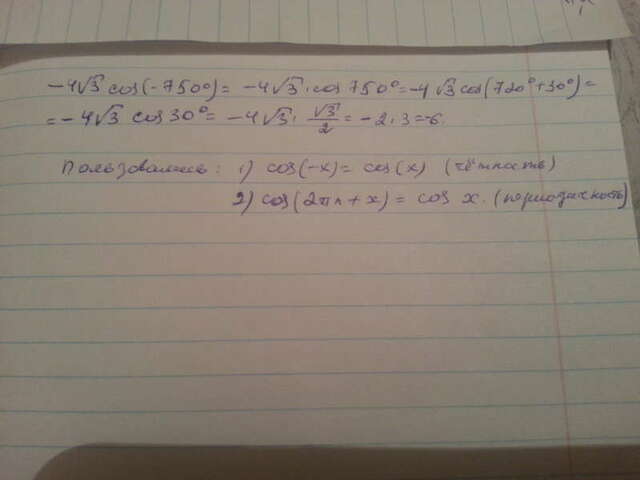 -4√3 cos(-750°) = -4√3 · cos 750° = -4√3 cos(720° + 30°) =
= -4√3 cos 30° = -4√3 · √3/2 = -2 · 3 = -6.
Пользовались: 1) cos(-x) = cos(x) (чётность)
2) cos(2πn + x) = cos x. (периодичность)